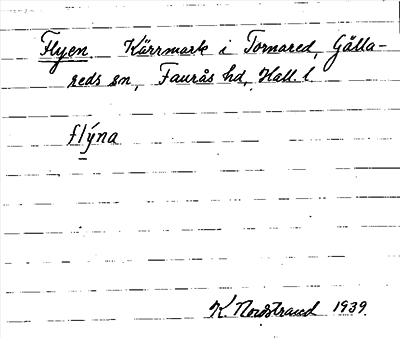 Flyen. Kärrmark i Tornared, Gälla-
reds sn, Faurås hd, Hall. l.
flýna
K. Nordstrand 1939.